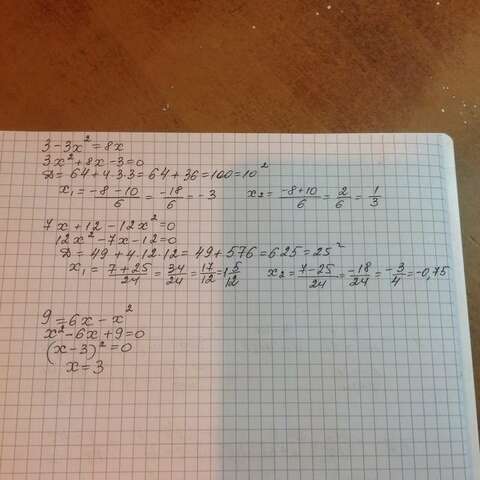 3 - 3x² = 8x
3x² + 8x - 3 = 0
D = 64 + 4·3·3 = 64 + 36 = 100 = 10²
x₁ = (-8 - 10)/6 = -18/6 = -3 x₂ = (-8 + 10)/6 = 2/6 = 1/3
7x + 12 - 12x² = 0
12x² - 7x - 12 = 0
D = 49 + 4·12·12 = 49 + 576 = 625 = 25²
x₁ = (7 + 25)/24 = 34/24 = 17/12 = 1 5/12 x₂ = (7 - 25)/24 = -18/24 = -3/4 = -0,75
9 = 6x - x²
x² - 6x + 9 = 0
(x - 3)² = 0
x = 3